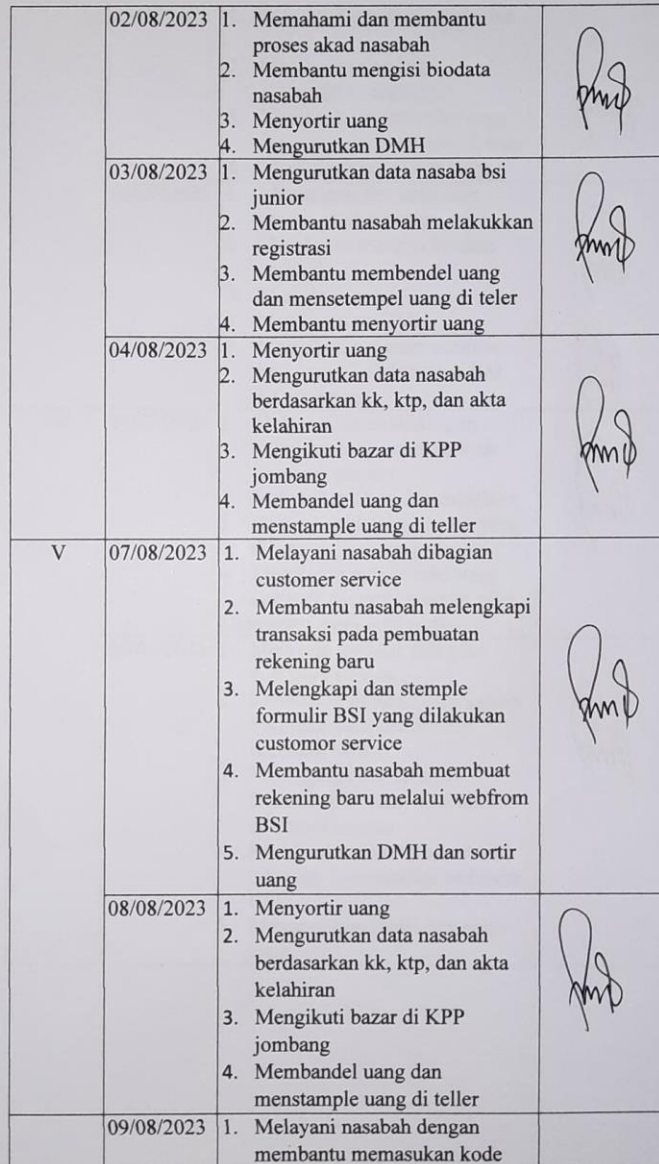 02/08/2023 1. Memahami dan membantu
proses akad nasabah
2. Membantu mengisi biodata
nasabah
3. Menyortir uang
4. Mengurutkan DMH
03/08/2023 1. Mengurutkan data nasaba bsi
junior
2. Membantu nasabah melakukkan
registrasi
3. Membantu membendel uang
dan mensetempel uang di teler
4. Membantu menyortir uang
04/08/2023 1. Menyortir uang
2. Mengurutkan data nasabah
berdasarkan kk, ktp, dan akta
kelahiran
3. Mengikuti bazar di KPP
jombang
4. Membandel uang dan
menstample uang di teller
V 07/08/2023 1. Melayani nasabah dibagian
customer service
2. Membantu nasabah melengkapi
transaksi pada pembuatan
rekening baru
3. Melengkapi dan stemple
formulir BSI yang dilakukan
customor service
4. Membantu nasabah membuat
rekening baru melalui webfrom
BSI
5. Mengurutkan DMH dan sortir
uang
08/08/2023 1. Menyortir uang
2. Mengurutkan data nasabah
berdasarkan kk, ktp, dan akta
kelahiran
3. Mengikuti bazar di KPP
jombang
4. Membandel uang dan
menstample uang di teller
09/08/2023 1. Melayani nasabah dengan
membantu memasukan kode